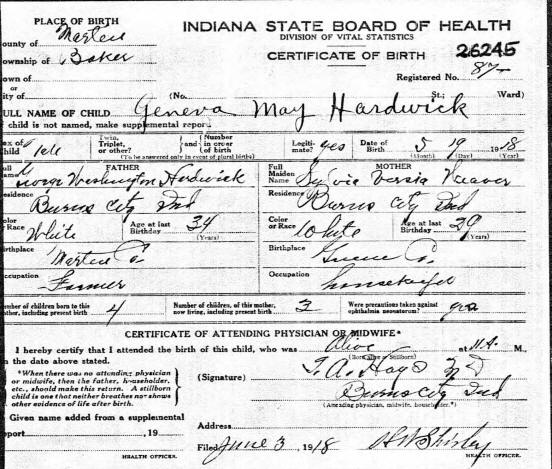 PLACE OF BIRTH
INDIANA STATE BOARD OF HEALTH
DIVISION OF VITAL STATISTICS
CERTIFICATE OF BIRTH
26245
ounty of
ownership of Baker
own of
or
ity of (No. St.; Ward)
Registered No. 87
ULL NAME OF CHILD Geneva May Hardwick
child is not named, make supplemental report
ex of hild
Twin, Triplet, or other
and
Number in order of birth
(To be answered only in event of plural births)
Legitimate? yes
Date of Birth 5 19 1918
(Month) (Day) (Year)
FATHER
George Washington Hardwick
esidence Burns City Ind
olor r Race White
Age at last Birthday 34 (Years)
irthplace Martin Co.
ccupation Farmer
MOTHER
Full Maiden Name Weaver
Residence Burns City Ind
Color or Race White
Age at last Birthday 29 (Years)
Birthplace Greene Co.
Occupation
umber of children born to this other, including present birth 4
Number of children, of this mother, now living, including present birth 3
Were precautions taken against ophthalmia neonatorum?
CERTIFICATE OF ATTENDING PHYSICIAN OR MIDWIFE*
I hereby certify that I attended the birth of this child, who was Alive at M.,
(Born alive or Stillborn)
n the date above stated.
*When there was no attending physician
or midwife, then the father, householder,
etc., should make this return. A stillborn
child is one that neither breathes nor shows
other evidence of life after birth.
(Signature)
Burns City Ind
(Attending physician, midwife, householder.*)
Given name added from a supplemental
eport , 19
HEALTH OFFICER.
Address
Filed June 3, 1918 Shirley
HEALTH OFFICER.